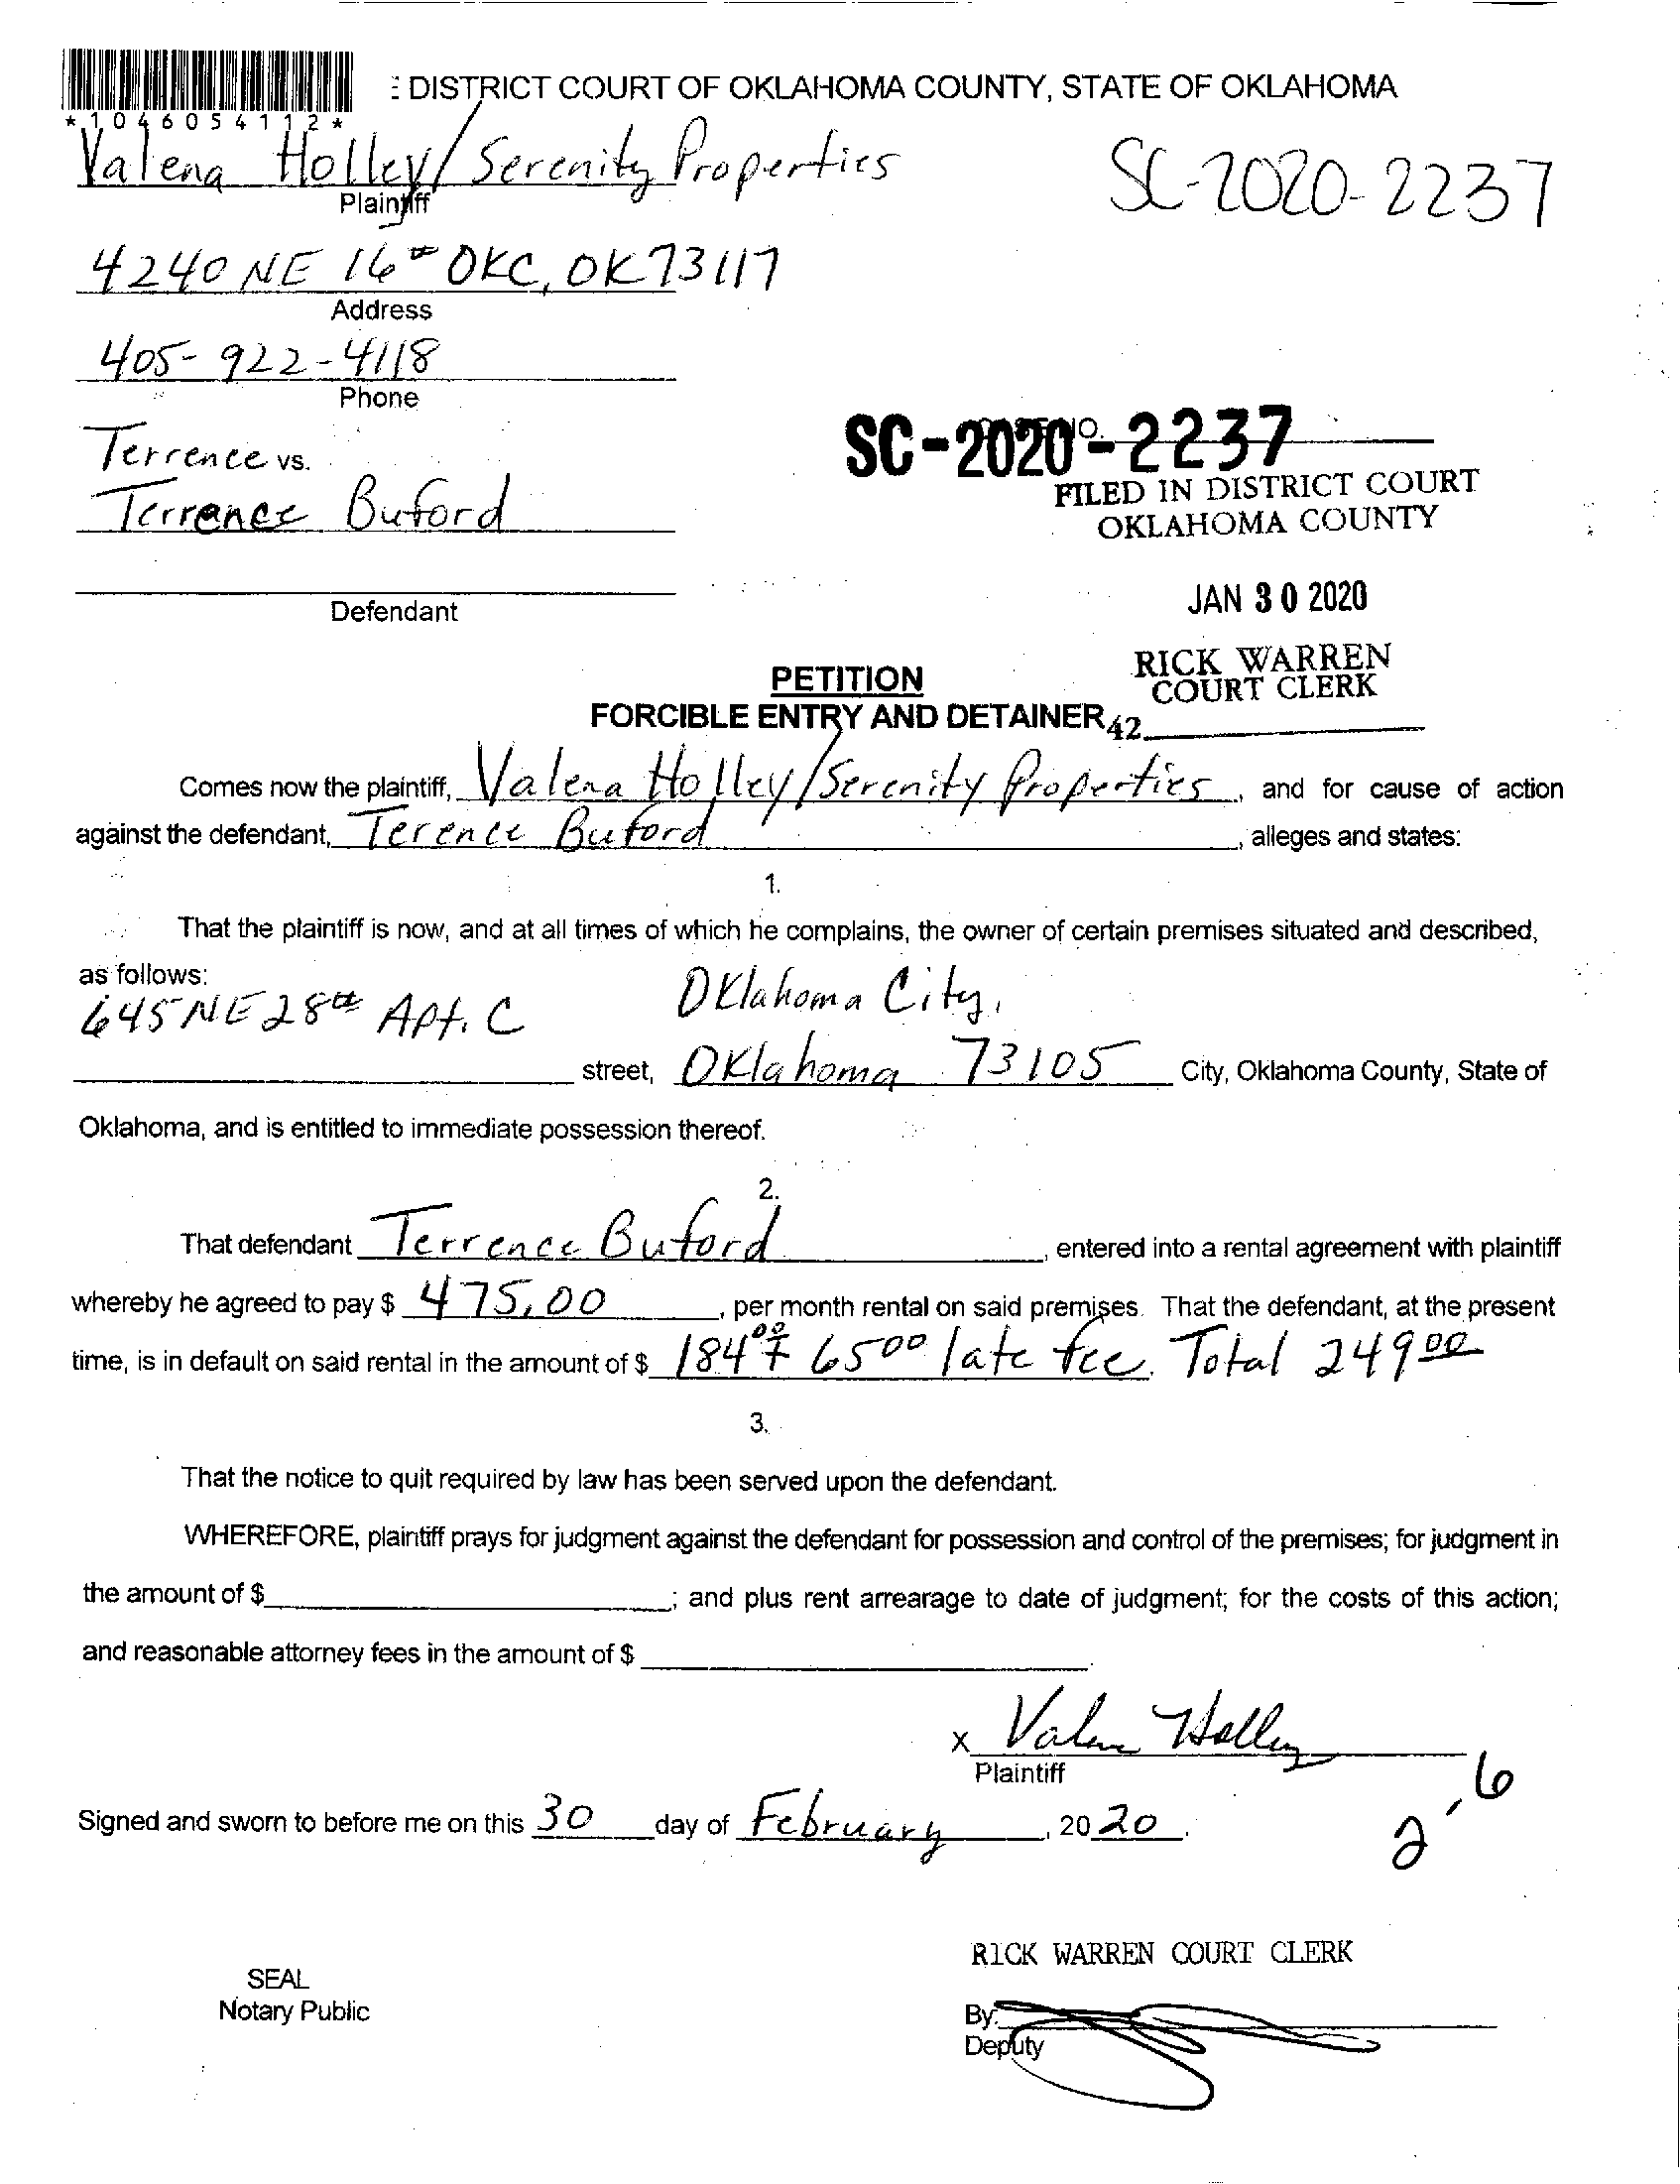 : DISTRICT COURT OF OKLAHOMA COUNTY, STATE OF OKLAHOMA
*1046054112*
Valena Holley/Serenity Properties
Plaintiff
SC-2020-2237
4240 NE 16th OKC, OK 73117
Address
405-922-4118
Phone
Terrence vs.
Terrence Buford
SC-2020-2237
FILED IN DISTRICT COURT
OKLAHOMA COUNTY
JAN 30 2020
Defendant
RICK WARREN
COURT CLERK
42
PETITION
FORCIBLE ENTRY AND DETAINER
Comes now the plaintiff, Valena Holley/Serenity Properties, and for cause of action
against the defendant, Terence Buford, alleges and states:
1.
That the plaintiff is now, and at all times of which he complains, the owner of certain premises situated and described,
as follows:
645 NE 28th Apt. C Oklahoma City,
street, Oklahoma 73105 City, Oklahoma County, State of
Oklahoma, and is entitled to immediate possession thereof.
2.
That defendant Terrence Buford, entered into a rental agreement with plaintiff
whereby he agreed to pay $ 475.00, per month rental on said premises. That the defendant, at the present
time, is in default on said rental in the amount of $ 184.00 + 65.00 late fee. Total 249.00
3.
That the notice to quit required by law has been served upon the defendant.
WHEREFORE, plaintiff prays for judgment against the defendant for possession and control of the premises; for judgment in
the amount of $ ; and plus rent arrearage to date of judgment; for the costs of this action;
and reasonable attorney fees in the amount of $ .
x Valena Holley
Plaintiff
Signed and sworn to before me on this 30 day of February, 2020.
2,6
RICK WARREN COURT CLERK
SEAL
Notary Public
By:
Deputy